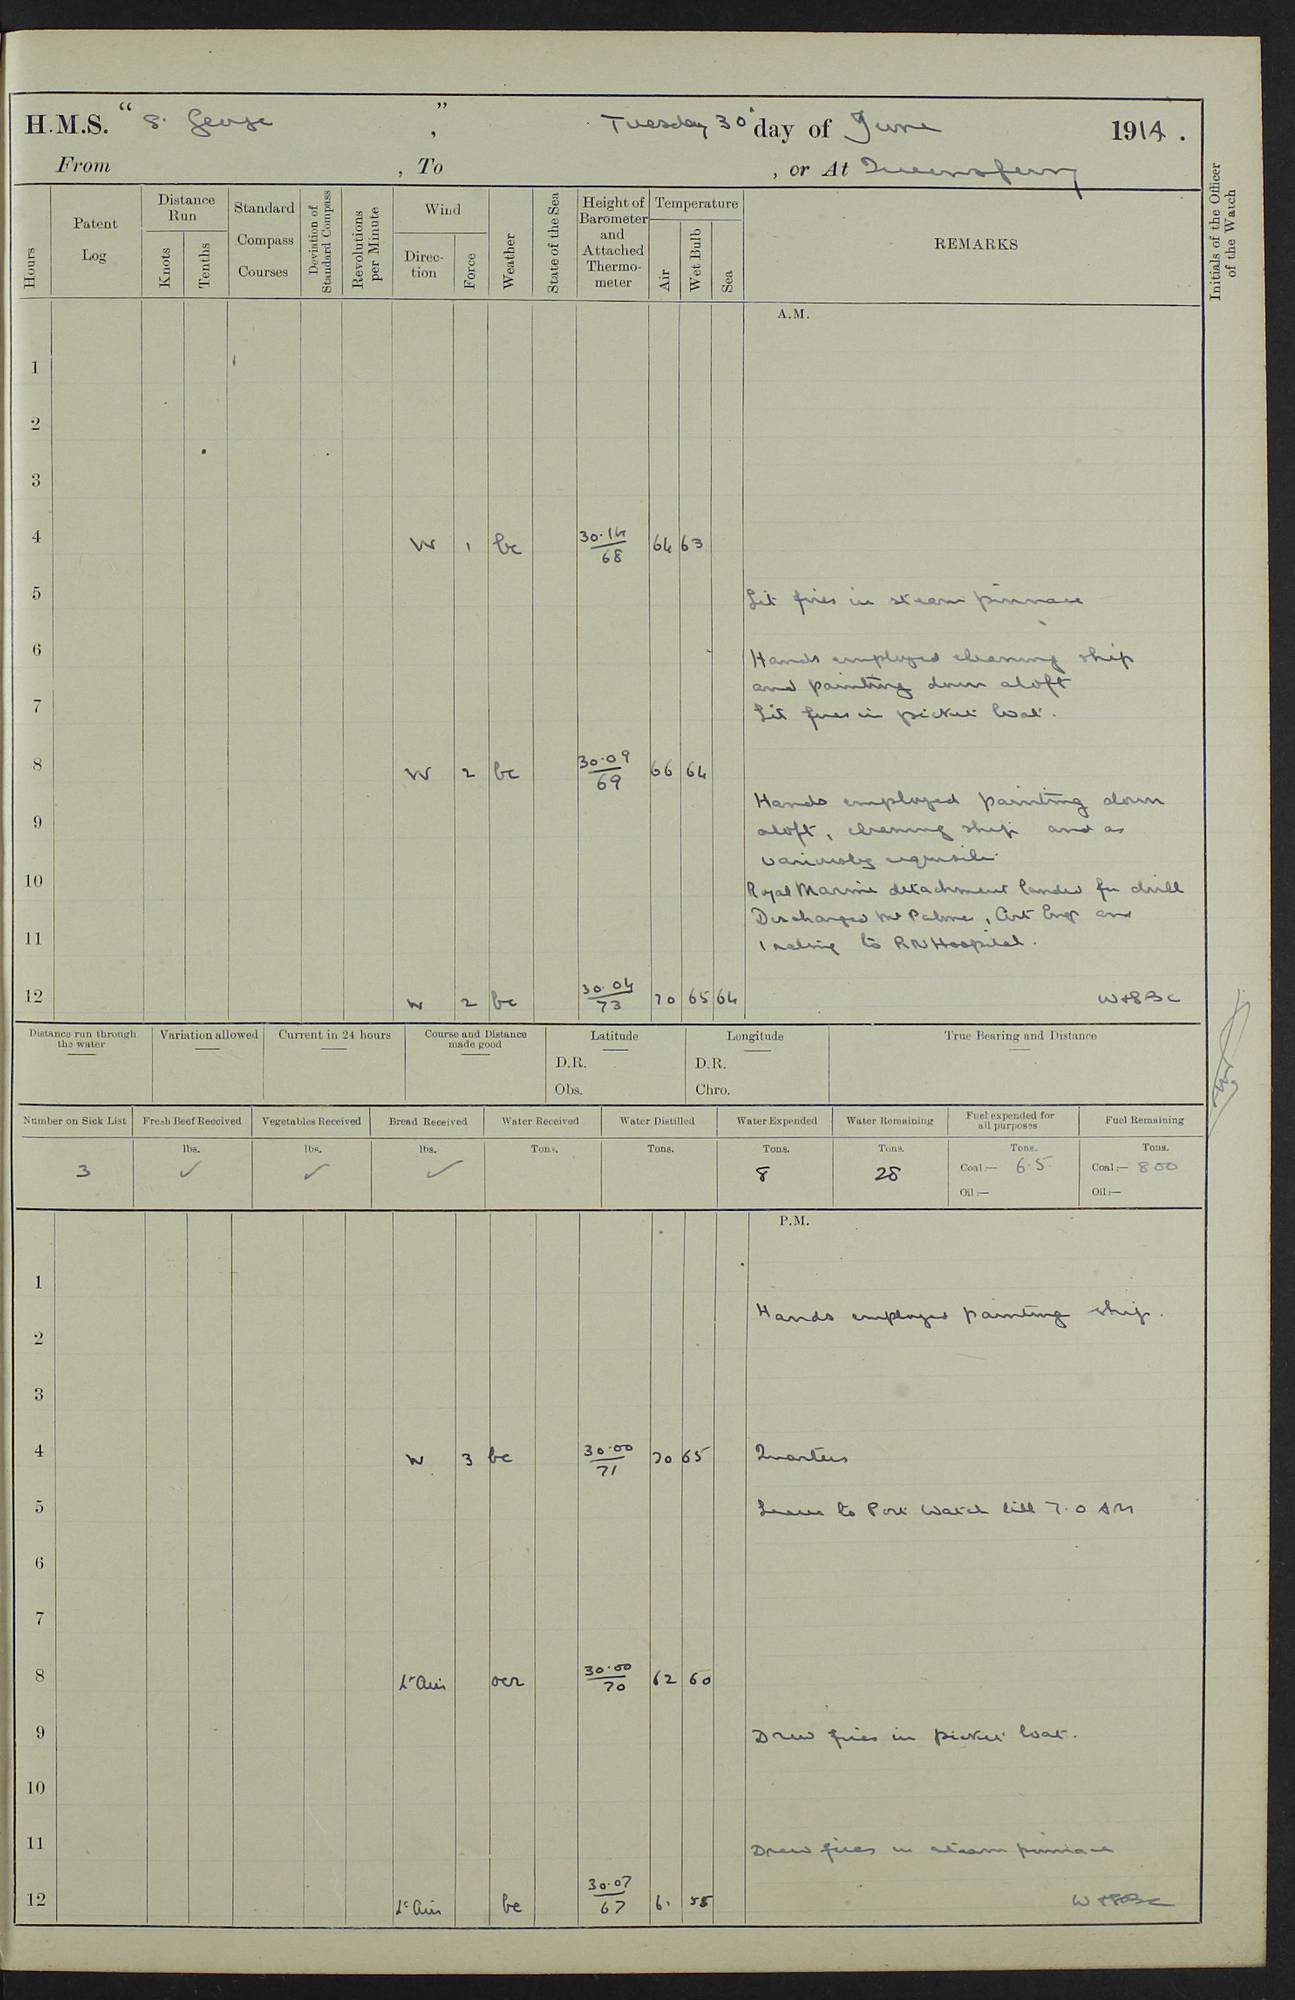 H.M.S. “ S. George , ” Tuesday 30 day of June 1914 .
From , To , or At Queensferry
Hours
Patent Log
Distance Run
Knots
Tenths
Standard Compass Courses
Deviation of Standard Compass
Revolutions per Minute
Wind
Direction
Force
Weather
State of the Sea
Height of Barometer and Attached Thermometer
Temperature
Air
Wet Bulb
Sea
REMARKS
Initials of the Officer of the Watch
A.M.
1
2
3
4 W 1 bc 30.14/68 64 63
5 Lit fires in steam pinnace
6 Hands employed cleaning ship
and painting down aloft
7 Lit fires in picket boat.
8 W 2 bc 30.09/69 66 64
Hands employed painting down
9 aloft, cleaning ship and as
variously requisite.
10 Royal Marine detachment landed for drill
Discharged Mr Palmer, Art Engr and
11 1 rating to RN Hospital.
12 W 2 bc 30.04/73 70 65 64
Distance run through the water
Variation allowed
Current in 24 hours
Course and Distance made good
Latitude
D.R.
Obs.
Longitude
D.R.
Chro.
True Bearing and Distance
Number on Sick List Fresh Beef Received Vegetables Received Bread Received Water Received Water Distilled Water Expended Water Remaining Fuel expended for all purposes Fuel Remaining
lbs. lbs. lbs. Tons. Tons. Tons. Tons. Tons. Tons.
3 ✓ ✓ ✓ 8 28 Coal:— 6.5 Coal:— 800
Oil:— Oil:—
P.M.
1
Hands employed painting ship.
2
3
4 W 3 bc 30.00/71 70 65 Quarters
5 Leave to Port Watch till 7.0 AM
6
7
8 Lt Airs ocr 30.00/70 62 60
9 Drew fires in picket boat.
10
11 Drew fires in steam pinnace
12 Lt Airs bc 30.07/67 58